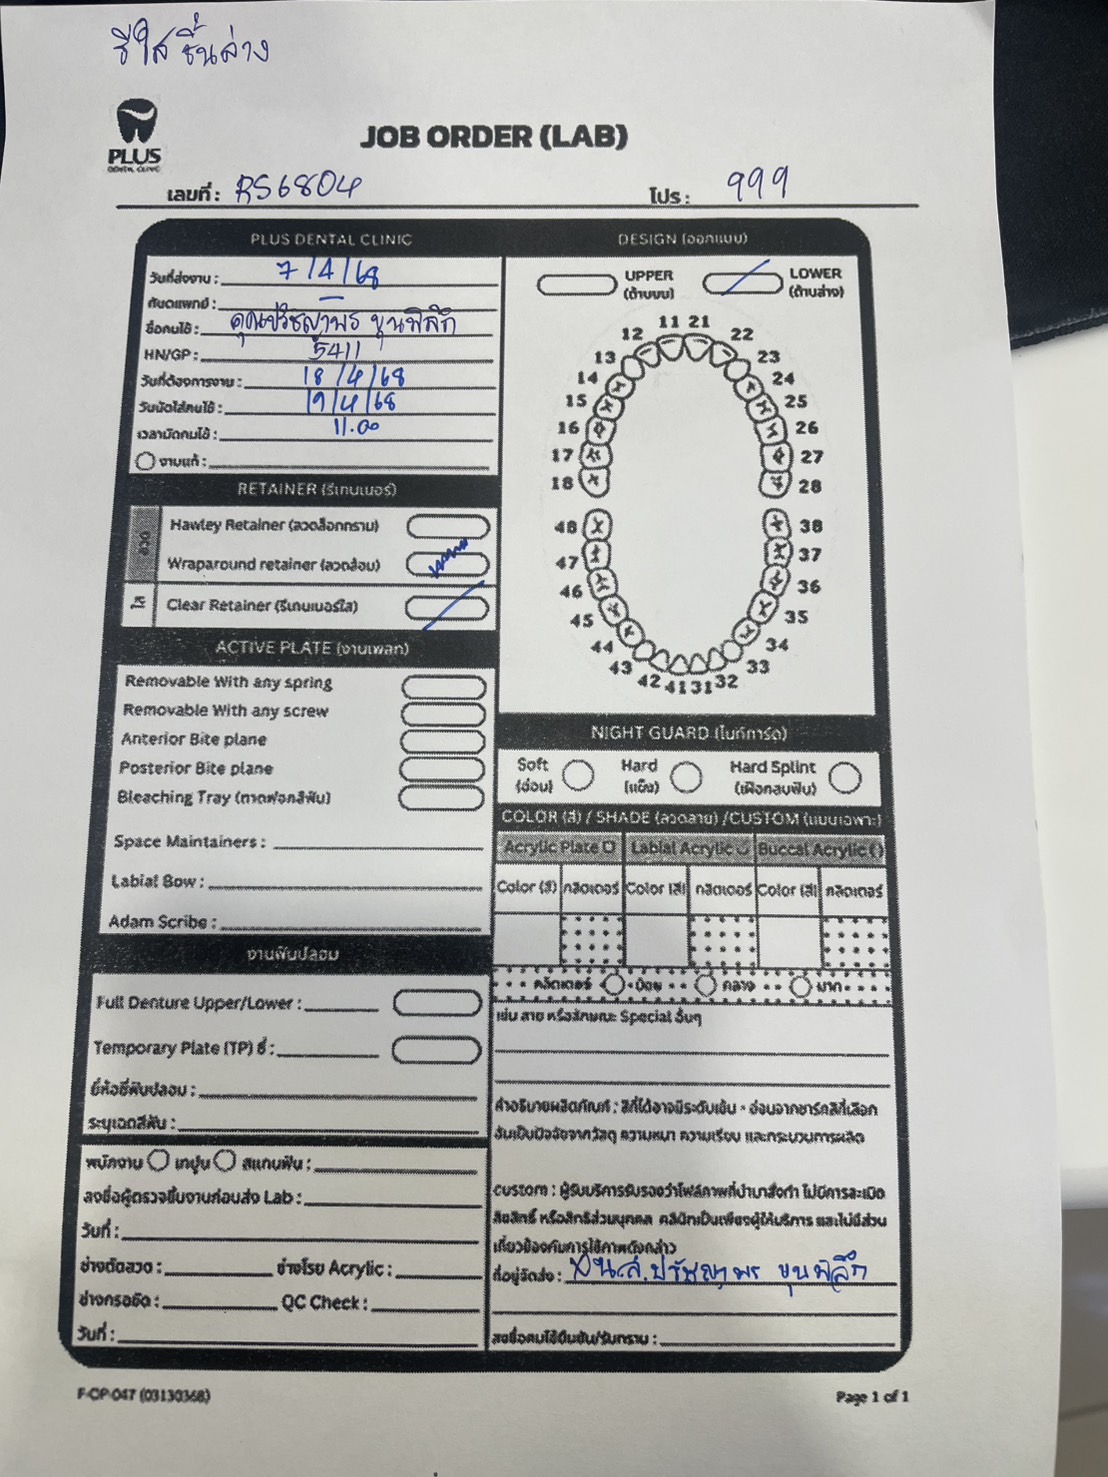 รีใส ชิ้นล่าง
PLUS
DENTAL CLINIC
JOB ORDER (LAB)
เลขที่ : RS6804
โปร : 999
PLUS DENTAL CLINIC
วันที่ส่งงาน : 7/4/68
ทันตแพทย์ : -
ชื่อคนไข้ : คุณปรัชญาพร ขุนพิลึก
HN/GP : 5411
วันที่ต้องการงาน : 18/4/68
วันนัดใส่คนไข้ : 19/4/68
เวลานัดคนไข้ : 11.00
งานแก้ :
RETAINER (รีเทนเนอร์)
ลวด
Hawley Retainer (ลวดล็อกกราม)
Wraparound retainer (ลวดอ้อม)
ใส
Clear Retainer (รีเทนเนอร์ใส)
ACTIVE PLATE (งานเพลท)
Removable With any spring
Removable With any screw
Anterior Bite plane
Posterior Bite plane
Bleaching Tray (ถาดฟอกสีฟัน)
Space Maintainers :
Labial Bow :
Adam Scribe :
งานฟันปลอม
Full Denture Upper/Lower :
Temporary Plate (TP) ซี่ :
ยี่ห้อซี่ฟันปลอม :
ระบุเฉดสีฟัน :
พนักงาน เทปูน สแกนฟัน :
ลงชื่อผู้ตรวจชิ้นงานก่อนส่ง Lab :
วันที่ :
ช่างดัดลวด : ช่างโรย Acrylic :
ช่างกรอขัด : QC Check :
วันที่ :
DESIGN (ออกแบบ)
UPPER
(ด้านบน)
LOWER
(ด้านล่าง)
11 21
12 22
13 23
14 24
15 25
16 26
17 27
18 28
48 38
47 37
46 36
45 35
44 34
43 33
42 41 31 32
NIGHT GUARD (ไนท์การ์ด)
Soft
(อ่อน)
Hard
(แข็ง)
Hard Splint
(เฝือกสบฟัน)
COLOR (สี) / SHADE (ลวดลาย) /CUSTOM (แบบเฉพาะ)
Acrylic Plate Labial Acrylic Buccal Acrylic ( )
Color (สี) กลิตเตอร์ Color (สี) กลิตเตอร์ Color (สี) กลิตเตอร์
กลิตเตอร์ น้อย กลาง มาก
เช่น ลาย หรือลักษณะ Special อื่นๆ
คำอธิบายผลิตภัณฑ์ : สีที่ได้อาจมีระดับเข้ม - อ่อนจากชาร์ตสีที่เลือก
อันเป็นปัจจัยจากวัสดุ ความหนา ความเรียบ และกระบวนการผลิต
custom : ผู้รับบริการรับรองว่าไฟล์ภาพที่นำมาสั่งทำ ไม่มีการละเมิด
ลิขสิทธิ์ หรือสิทธิส่วนบุคคล คลินิกเป็นเพียงผู้ให้บริการ และไม่มีส่วน
เกี่ยวข้องกับการใช้ภาพดังกล่าว
ที่อยู่จัดส่ง : น.ส.ปรัชญาพร ขุนพิลึก
ลงชื่อคนไข้ยืนยัน/รับทราบ :
F-OP-047 (03130368)
Page 1 of 1